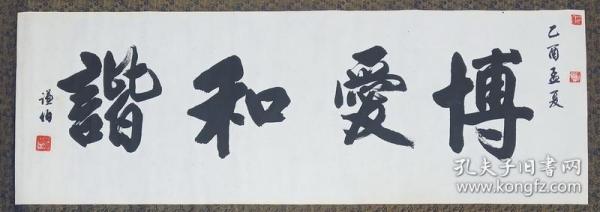 乙酉孟夏
博愛和諧
谦伯
孔夫子旧书网
www.kongfz.com